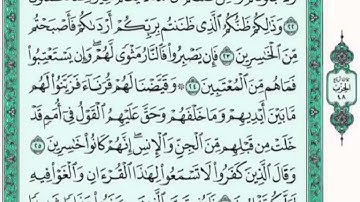 وَذَٰلِكُمْ ظَنُّكُمُ ٱلَّذِى ظَنَنتُم بِرَبِّكُمْ أَرْدَىٰكُمْ فَأَصْبَحْتُم
مِّنَ ٱلْخَـٰسِرِينَ ٢٣ فَإِن يَصْبِرُوا۟ فَٱلنَّارُ مَثْوًى لَّهُمْ ۖ وَإِن يَسْتَعْتِبُوا۟
فَمَا هُم مِّنَ ٱلْمُعْتَبِينَ ٢٤ ۞ وَقَيَّضْنَا لَهُمْ قُرَنَآءَ فَزَيَّنُوا۟ لَهُم
مَّا بَيْنَ أَيْدِيهِمْ وَمَا خَلْفَهُمْ وَحَقَّ عَلَيْهِمُ ٱلْقَوْلُ فِىٓ أُمَمٍ قَدْ
خَلَتْ مِن قَبْلِهِم مِّنَ ٱلْجِنِّ وَٱلْإِنسِ ۖ إِنَّهُمْ كَانُوا۟ خَـٰسِرِينَ ٢٥
وَقَالَ ٱلَّذِينَ كَفَرُوا۟ لَا تَسْمَعُوا۟ لِهَـٰذَا ٱلْقُرْءَانِ وَٱلْغَوْا۟ فِيهِ
الحزب
٤٨